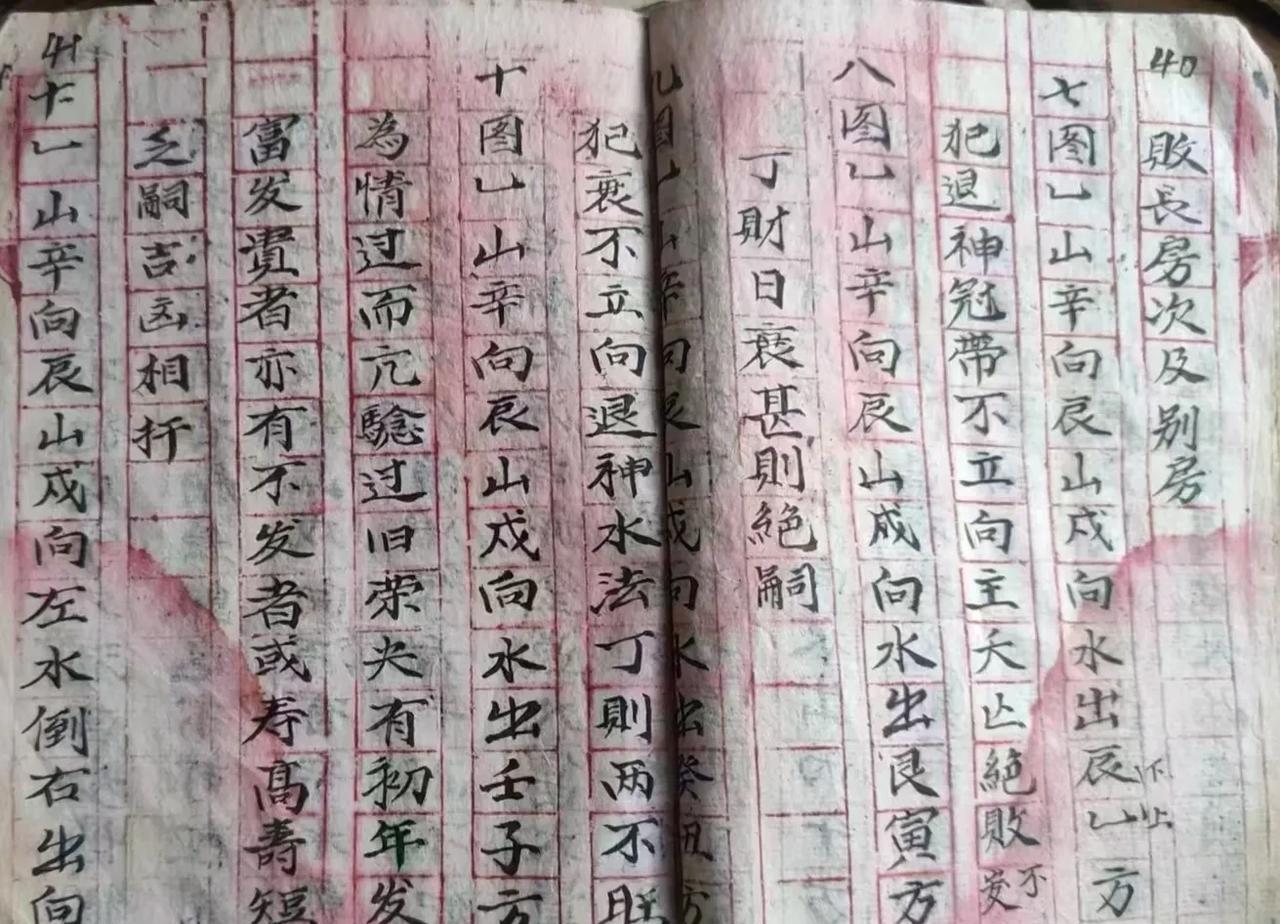 40
敗長房次及别房
七图乙山辛向辰山戍向水出辰乙方
犯退神冠帶不立向主夭亡絕敗不发
八图乙山辛向辰山戍向水出艮寅方
丁財日衰甚則絕嗣
九图乙山辛向辰山戍向水出癸丑方
犯衰不立向退神水法丁則两不旺
41
十图乙山辛向辰山戍向水出壬子方
為情过而亢驗过旧荣夫有初年发
富发貴者亦有不发者或寿高壽短
乏嗣吉凶相扦
乙山辛向辰山戍向左水倒右出向